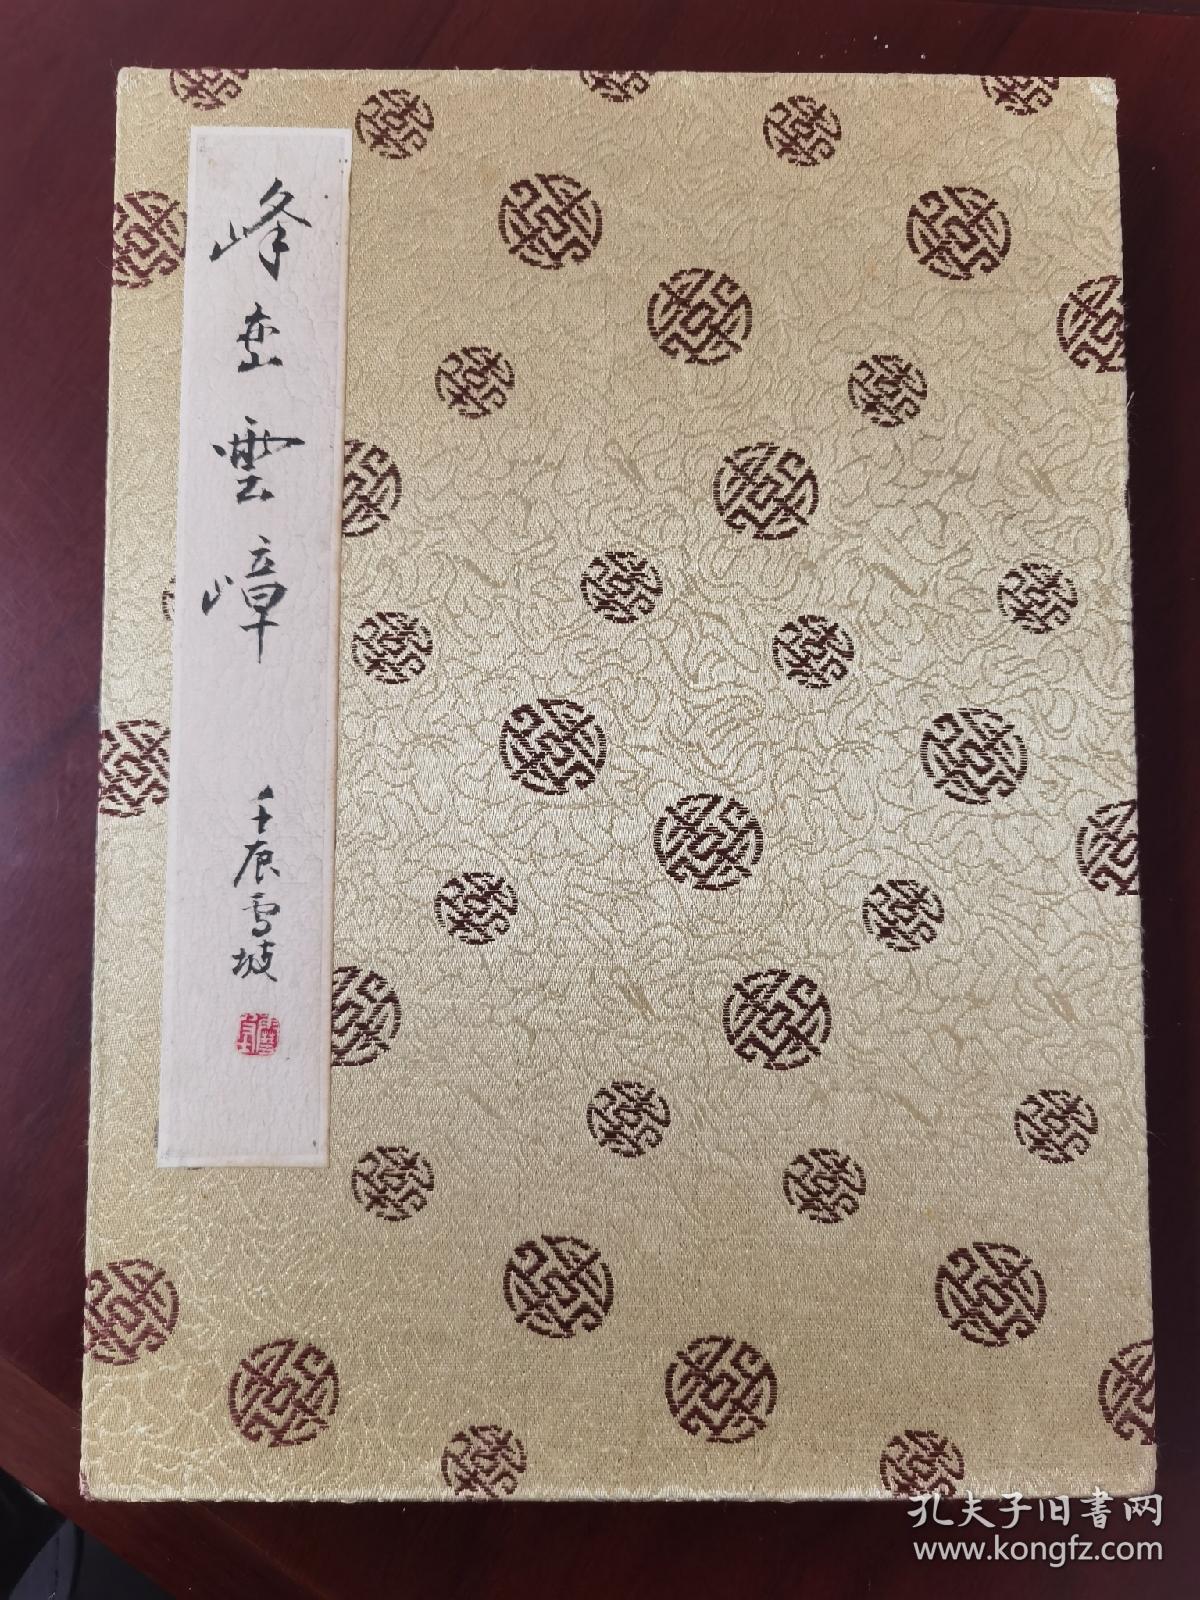 峰峦雲嶂
壬辰雪坡
孔夫子旧書网
www.kongfz.com